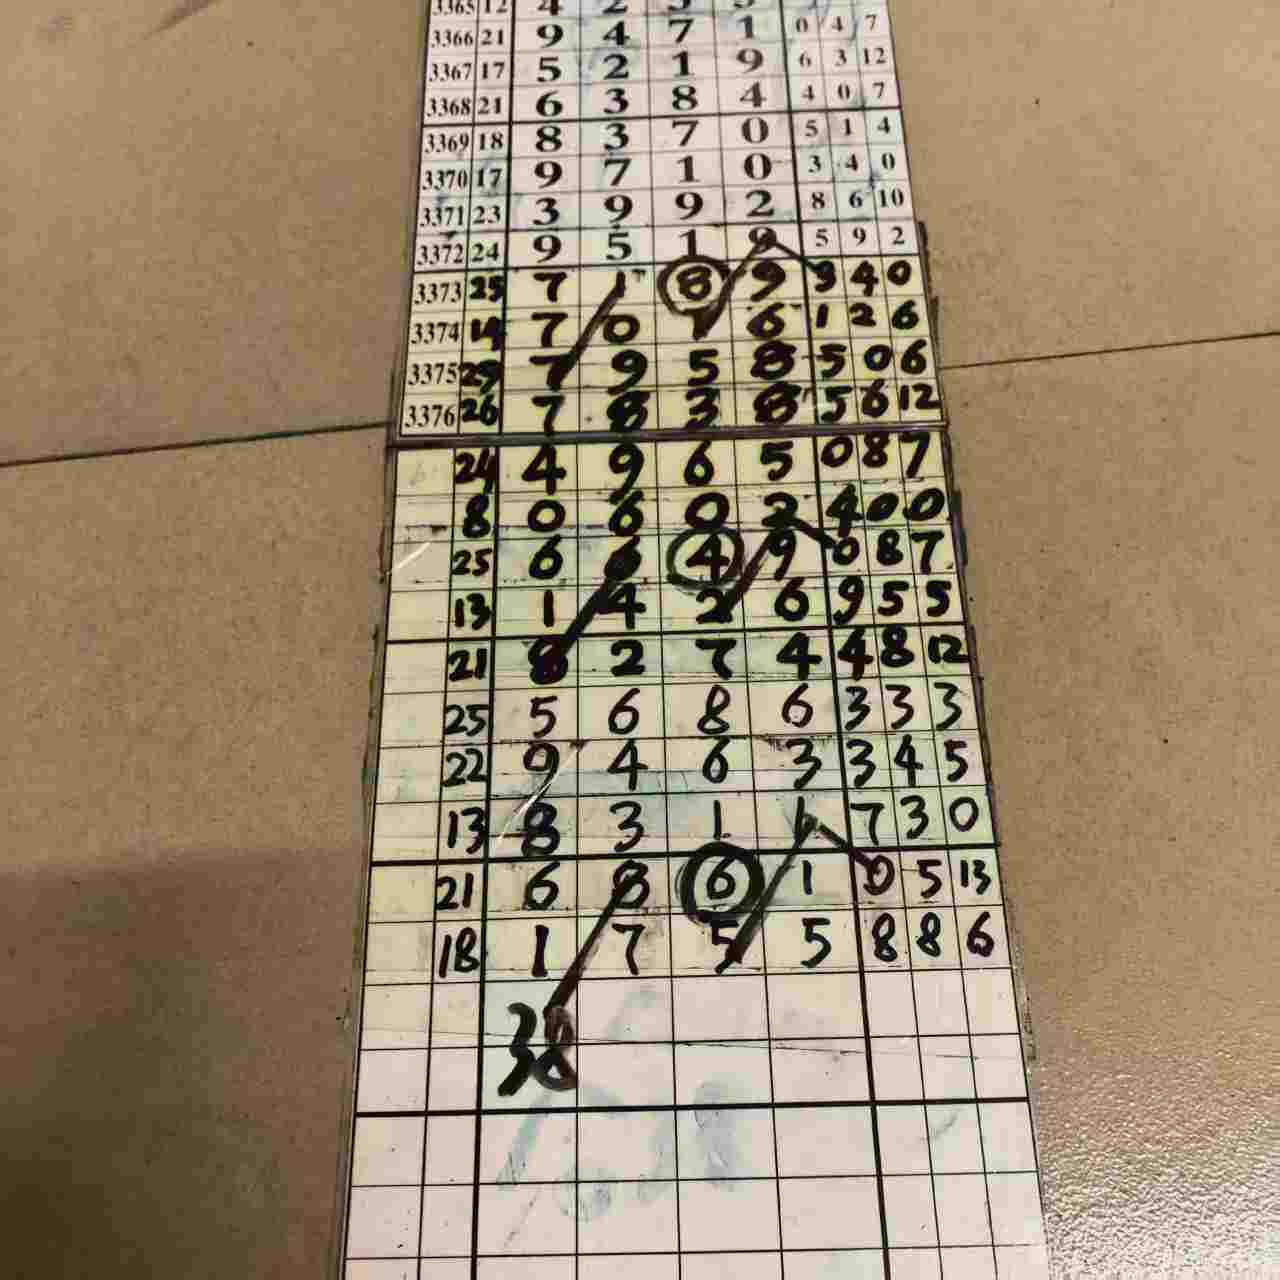 3365 12 4 2
3366 21 9 4 7 1 0 4 7
3367 17 5 2 1 9 6 3 12
3368 21 6 3 8 4 4 0 7
3369 18 8 3 7 0 5 1 4
3370 17 9 7 1 0 3 4 0
3371 23 3 9 9 2 8 6 10
3372 24 9 5 1 9 5 9 2
3373 25 7 1 8 9 3 4 0
3374 14 7 0 1 6 1 2 6
3375 29 7 9 5 8 5 0 6
3376 26 7 8 3 8 5 6 12
24 4 9 6 5 0 8 7
8 0 6 0 2 4 0 0
25 6 6 4 9 0 8 7
13 1 4 2 6 9 5 5
21 8 2 7 4 4 8 12
25 5 6 8 6 3 3 3
22 9 4 6 3 3 4 5
13 8 3 1 1 7 3 0
21 6 8 6 1 0 5 13
18 1 7 5 5 8 8 6
38